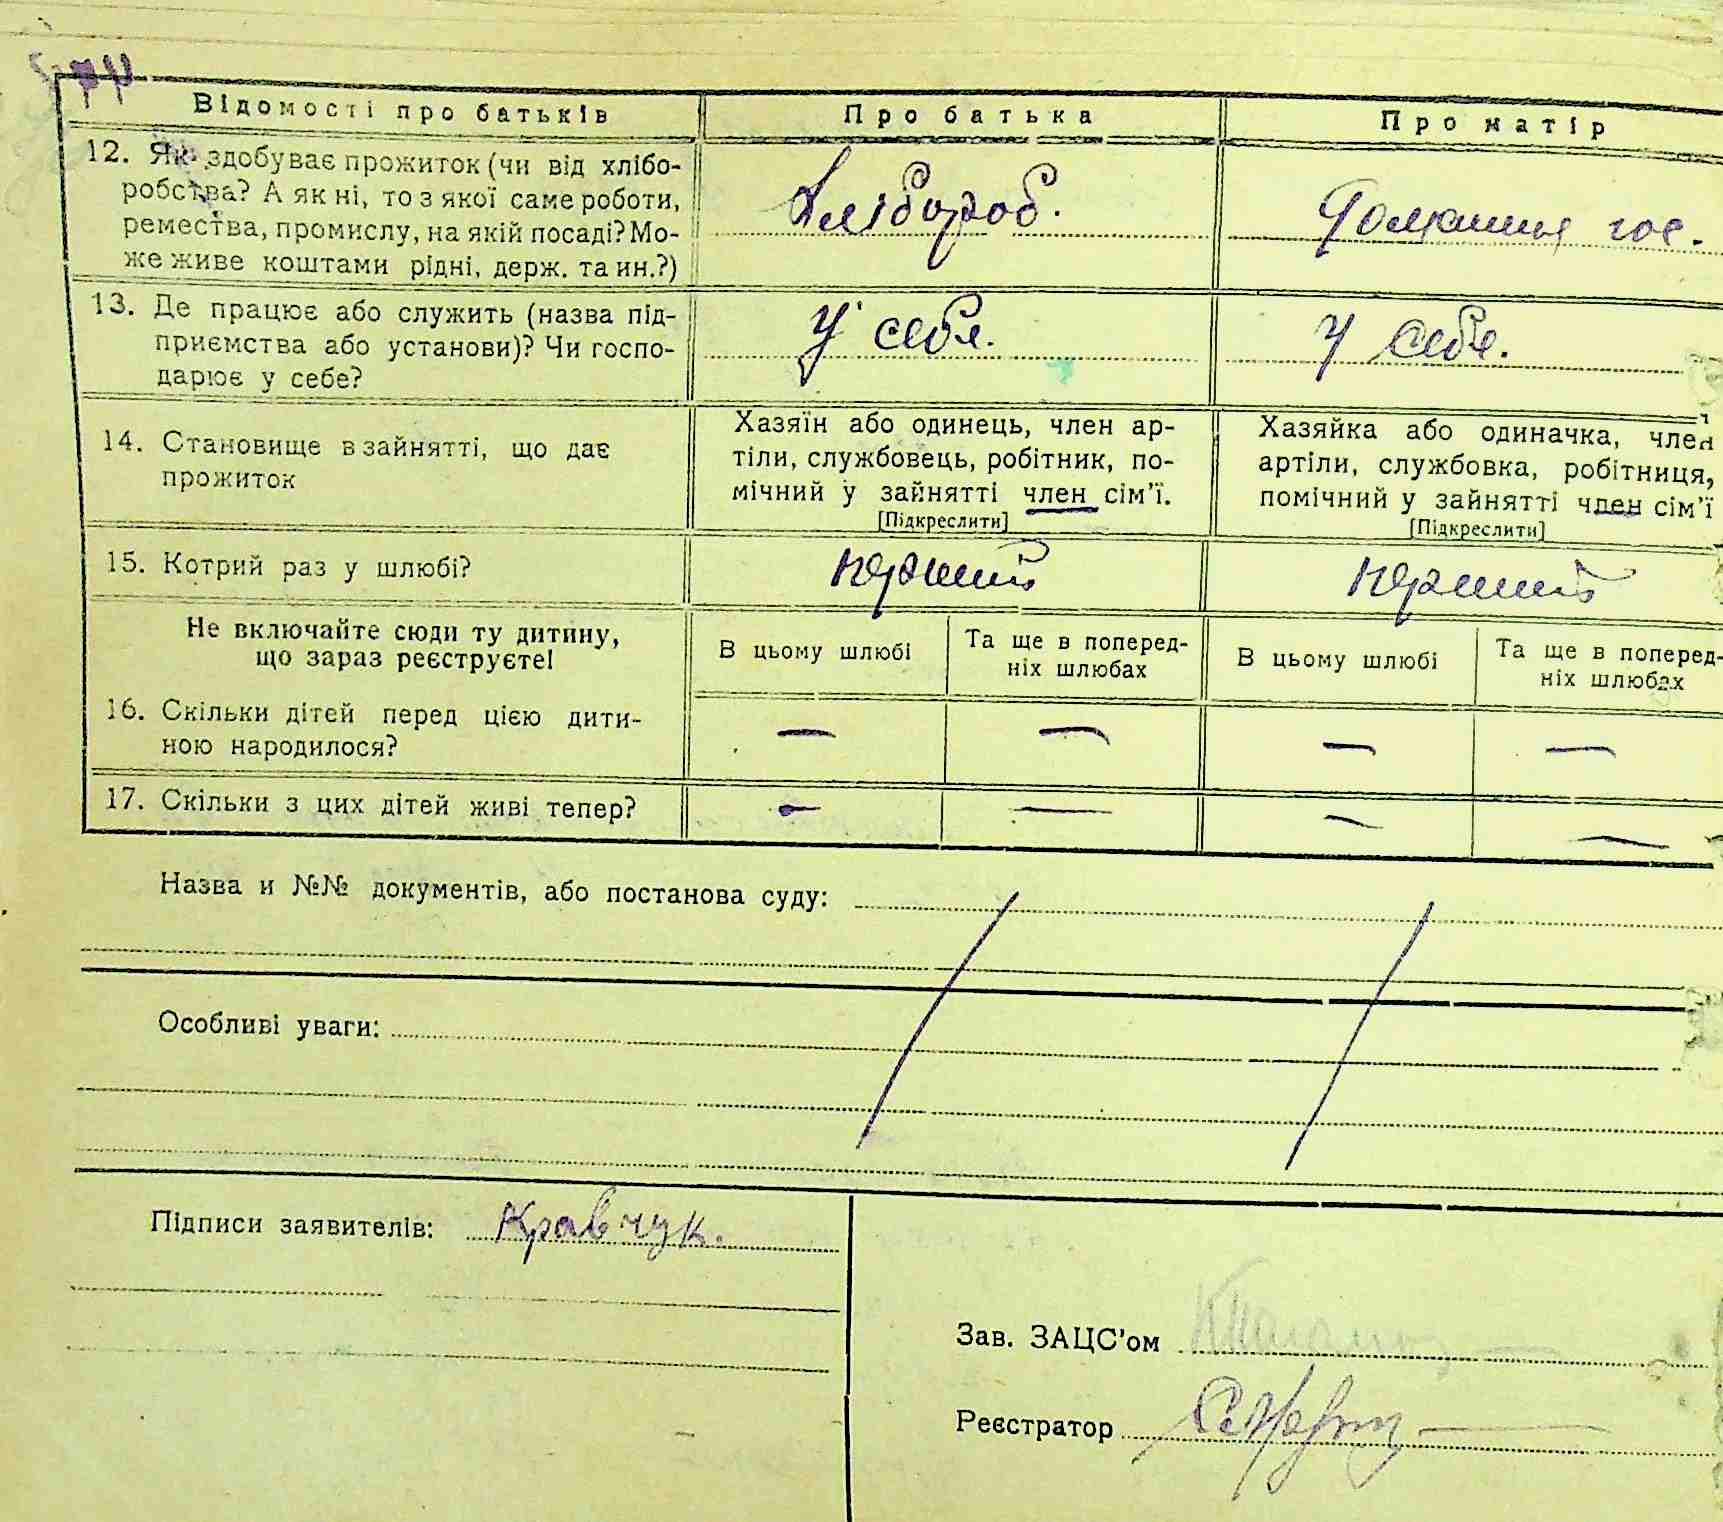 Відомості про батьків
Про батька
Про матір
12. Як здобуває прожиток (чи від хлібо-
робства? А як ні, то з якої саме роботи,
ремества, промислу, на якій посаді? Мо-
же живе коштами рідні, держ. та ин.?)
Хлібороб.
Домашня гос.
13. Де працює або служить (назва під-
приємства або установи)? Чи госпо-
дарює у себе?
У себя.
У себе.
14. Становище в зайнятті, що дає
прожиток
Хазяїн або одинець, член ар-
тіли, службовець, робітник, по-
мічний у зайнятті член сім’ї.
[Підкреслити]
Хазяйка або одиначка, член
артіли, службовка, робітниця,
помічний у зайнятті член сім’ї
[Підкреслити]
15. Котрий раз у шлюбі?
перший
перший
Не включайте сюди ту дитину,
що зараз реєструєте!
В цьому шлюбі
Та ще в поперед-
ніх шлюбах
В цьому шлюбі
Та ще в поперед-
ніх шлюбах
16. Скільки дітей перед цією дити-
ною народилося?
— — — —
17. Скільки з цих дітей живі тепер?
— — — —
Назва и №№ документів, або постанова суду:
Особливі уваги:
Підписи заявителів: Кравчук.
Зав. ЗАЦС’ом
Реєстратор